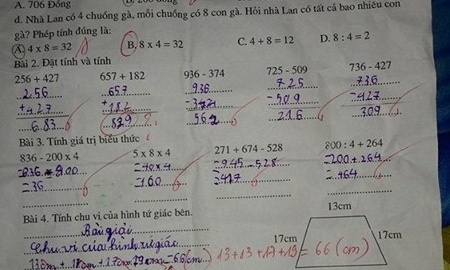 A. 706 Đồng
d. Nhà Lan có 4 chuồng gà, mỗi chuồng có 8 con gà. Hỏi nhà Lan có tất cả bao nhiêu con
gà? Phép tính đúng là:
A. 4 x 8 = 32 B. 8 x 4 = 32 C. 4 + 8 = 12 D. 8 : 4 = 2
Bài 2. Đặt tính và tính
256 + 427 657 + 182 936 - 374 725 - 509 736 - 427
256 657 936 725 736
+ 427 + 182 - 509 - 427
683 562 216 309
Bài 3. Tính giá trị biểu thức
836 - 200 x 4 5 x 8 x 4 271 + 674 - 528 800 : 4 + 264
= 836 - 800 = 40 x 4 = 945 - 528 = 200 + 264
= 36 = 160 = 417 = 464
Bài 4. Tính chu vi của hình tứ giác bên.
Bài giải
Chu vi của hình tứ giác
13cm 17cm 17cm
13 + 13 + 17 + = 66 (cm)